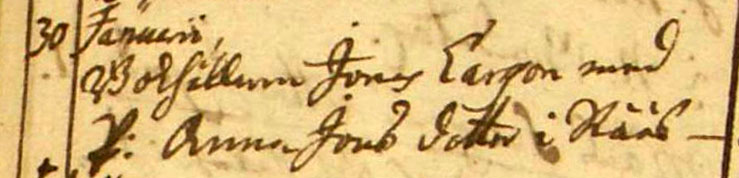 30 Januari,
Bokhållaren Jonas Larsson med
P: Anna Jons dotter i Nääs —